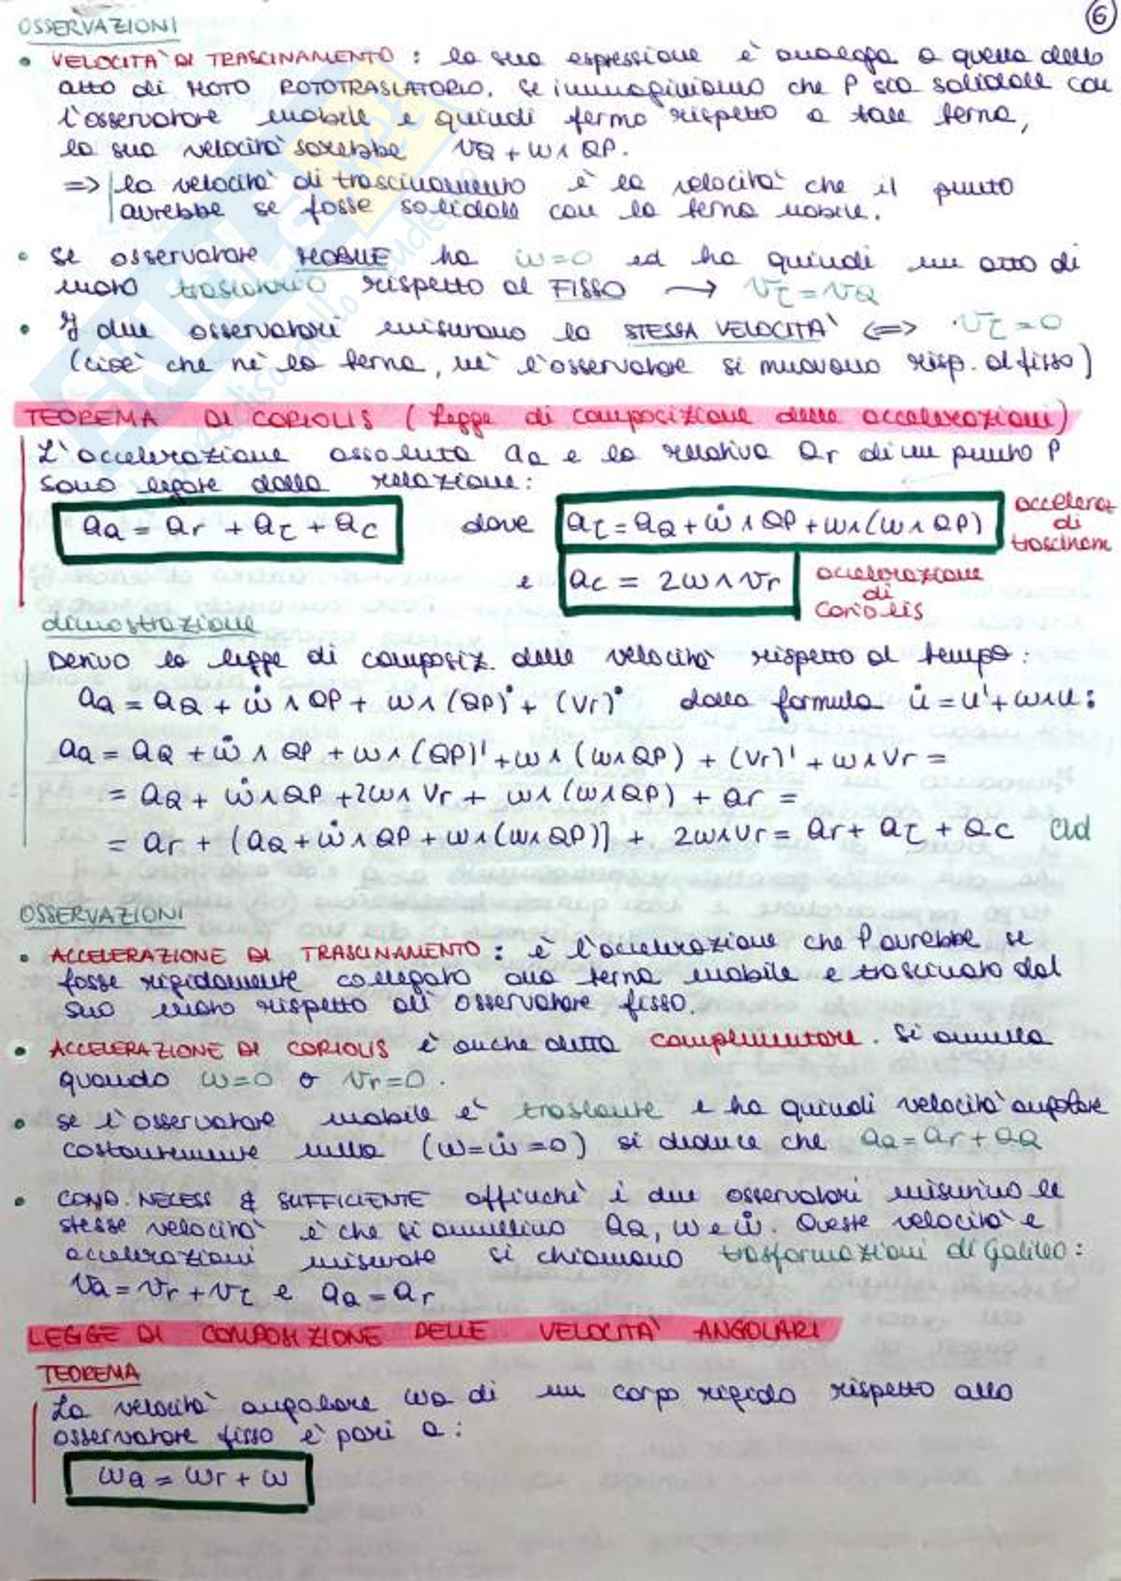 6
OSSERVAZIONI
• VELOCITA' DI TRASCINAMENTO : la sua espressione è analoga a quella dello
atto di MOTO ROTOTRASLATORIO. Se immaginiamo che P sia solidale con
l'osservatore mobile e quindi fermo rispetto a tale terna,
la sua velocità sarebbe vQ + ω∧QP.
=> la velocità di trascinamento è la velocità che il punto
avrebbe se fosse solidale con la terna mobile.
• Se osservatore MOBILE ha ω=0 ed ha quindi un atto di
moto traslatorio rispetto al FISSO → vτ = vQ
• I due osservatori misurano la STESSA VELOCITA' <=> vτ = 0
(cioè che nè la terna, nè l'osservatore si muovono risp. al fisso)
TEOREMA DI CORIOLIS (Legge di composizione delle accelerazioni)
L'accelerazione assoluta aa e la relativa ar di un punto P
sono legate dalla relazione:
aa = ar + aτ + ac dove aτ = aQ + ω̇∧QP + ω∧(ω∧QP) accelerat di trascinam
e ac = 2ω∧vr accelerazione di Coriolis
dimostrazione
Derivo la legge di composiz. delle velocità rispetto al tempo:
aa = aQ + ω̇∧QP + ω∧(QP)˙ + (vr)˙ dalla formula u̇ = u' + ω∧u :
aa = aQ + ω̇∧QP + ω∧(QP)' + ω∧(ω∧QP) + (vr)' + ω∧vr =
= aQ + ω̇∧QP + 2ω∧vr + ω∧(ω∧QP) + ar =
= ar + [aQ + ω̇∧QP + ω∧(ω∧QP)] + 2ω∧vr = ar + aτ + ac cvd
OSSERVAZIONI
• ACCELERAZIONE DI TRASCINAMENTO : è l'accelerazione che P avrebbe se
fosse rigidamente collegato alla terna mobile e trascinato dal
suo moto rispetto all'osservatore fisso.
• ACCELERAZIONE DI CORIOLIS è anche detta complementare. Si annulla
quando ω=0 o vr=0.
• se l'osservatore mobile è traslante e ha quindi velocità angolare
costantemente nulla (ω=ω̇=0) si deduce che aa = ar + aQ
• COND. NECESS & SUFFICIENTE affinchè i due osservatori misurino le
stesse velocità è che si annullino aQ, ω e ω̇. Queste velocità e
accelerazioni misurate si chiamano trasformazioni di Galileo:
va = vr + vτ e aa = ar
LEGGE DI COMPOSIZIONE DELLE VELOCITA' ANGOLARI
TEOREMA
La velocità angolare ωa di un corpo rigido rispetto allo
osservatore fisso è pari a :
ωa = ωr + ω